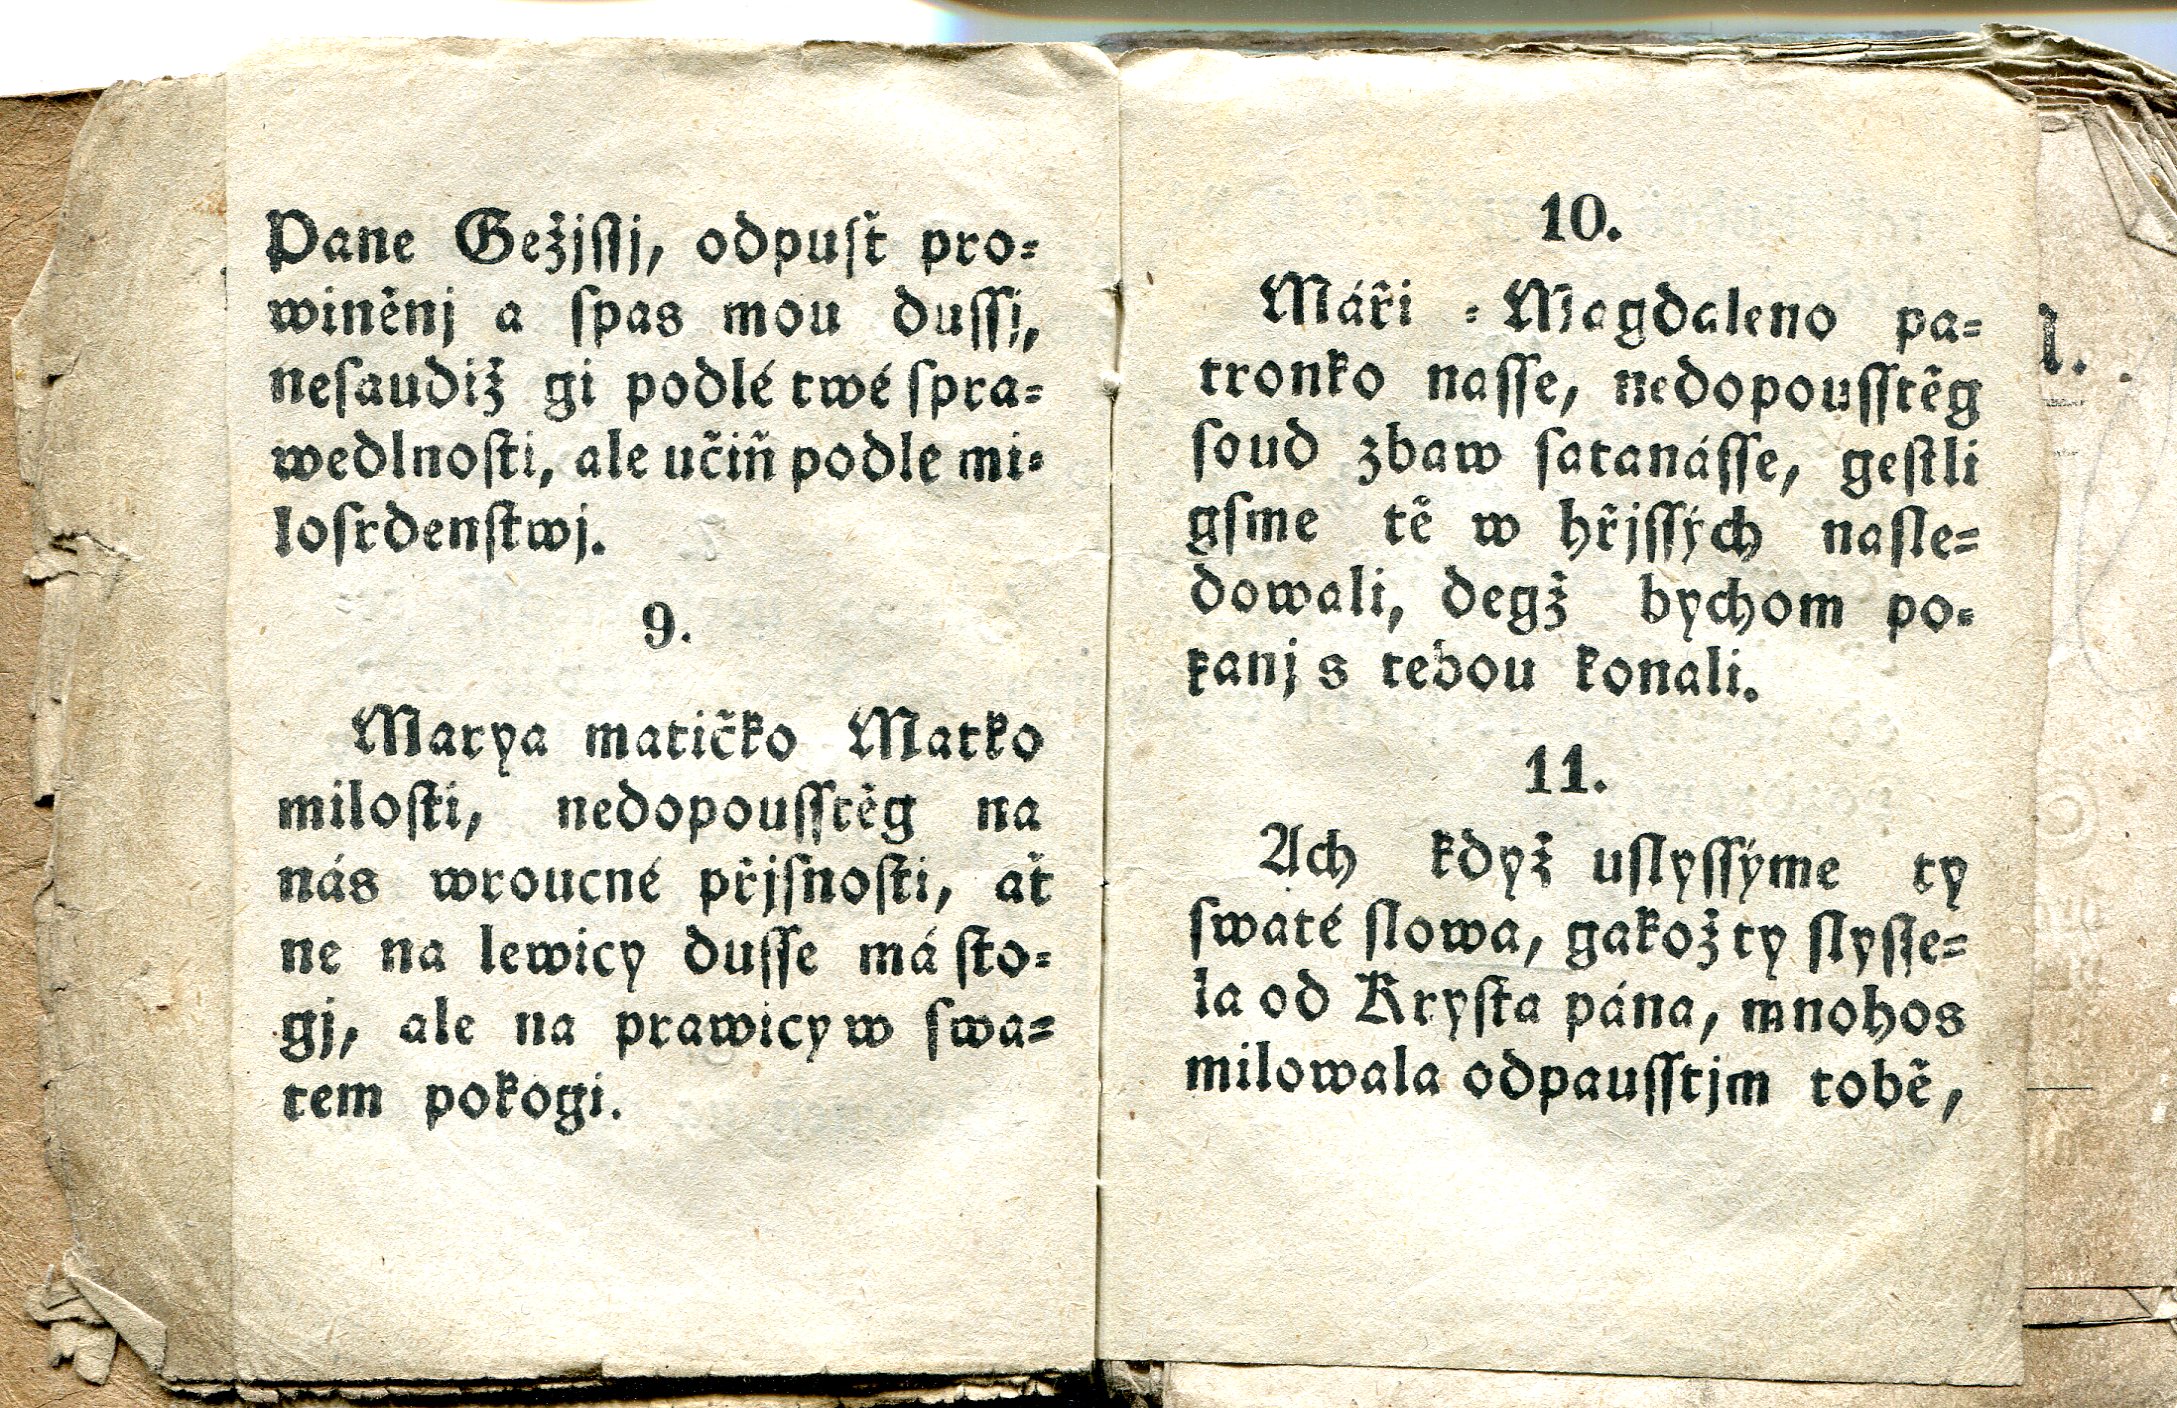 Pane Gežjſſj, odpuſť pro⸗
winěnj a ſpas mou duſſi,
neſaudiž gi podlé twé ſpra⸗
wedlnoſti, ale učiň podle mi⸗
loſrdenſtwj.
9.
Marya matičko Matko
miloſti, nedopouſſtěg na
nás wroucné přjſnoſti, ať
ne na lewicy duſſe má ſto⸗
gj, ale na prawicy w ſwa⸗
tem pokogi.
10.
Máři ⸗ Magdaleno pa⸗
tronko naſſe, nedopouſſtěg
ſoud zbaw ſatanáſſe, geſtli
gſme tě w hřjſſých naſle⸗
dowali, degž bychom po⸗
kanj s tebou konali.
11.
Ach když uſlyſſýme ty
ſwaté ſlowa, gakož ty ſlyſſe⸗
la od Kryſta pána, mnohos
milowala odpauſſtjm tobě,